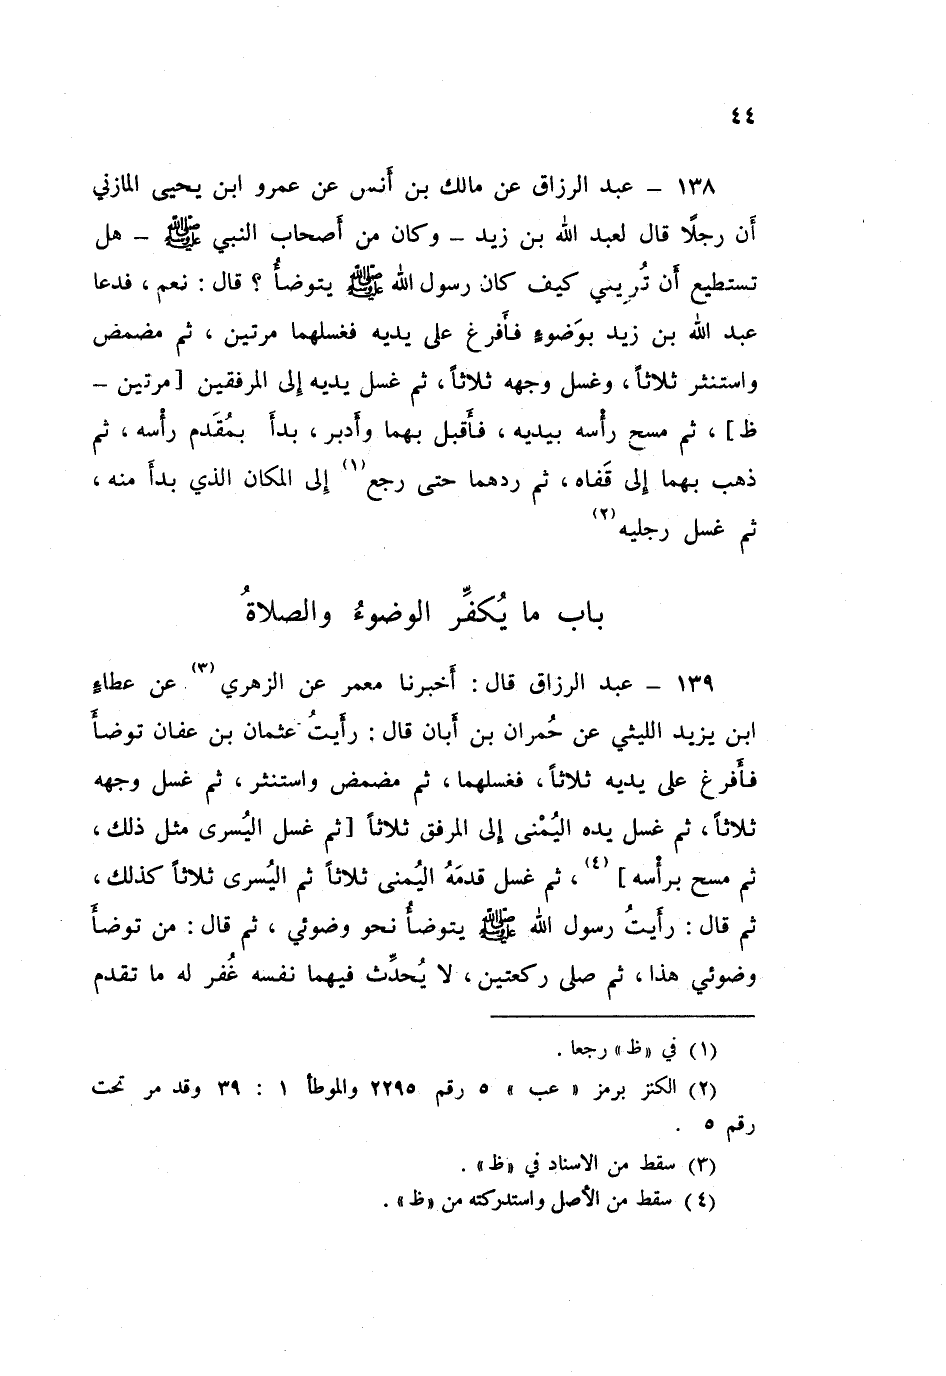 ٤٤
١٣٨ – عبد الرزاق عن مالك بن أَنس عن عمرو ابن يحيى المازني
أَن رجلًا قال لعبد الله بن زيد – وكان من أَصحاب النبي ﷺ – هل
تستطيع أَن تُريني كيف كان رسول الله ﷺ يتوضأُ ؟ قال : نعم ، فدعا
عبد الله بن زيد بوَضوءٍ فأَفرغ على يديه فغسلهما مرتين ، ثم مضمض
واستنثر ثلاثاً ، وغسل وجهه ثلاثاً ، ثم غسل يديه إلى المرفقين [مرتين –
ظ] ، ثم مسح رأْسه بيديه ، فأَقبل بهما وأَدبر ، بدأَ بمُقَدم رأْسه ، ثم
ذهب بهما إلى قَفاه ، ثم ردهما حتى رجع(١) إلى المكان الذي بدأَ منه ،
ثم غسل رجليه(٢)
باب ما يُكفِّر الوضوءُ والصلاةُ
١٣٩ – عبد الرزاق قال : أَخبرنا معمر عن الزهري(٣) عن عطاءٍ
ابن يزيد الليثي عن حُمران بن أَبان قال : رأَيتُ عثمان بن عفان توضأَ
فأَفرغ على يديه ثلاثاً ، فغسلهما ، ثم مضمض واستنثر ، ثم غسل وجهه
ثلاثاً ، ثم غسل يده اليُمْنى إلى المرفق ثلاثاً [ثم غسل اليُسرى مثل ذلك ،
ثم مسح برأْسه] (٤) ، ثم غسل قدمَهُ اليُمنى ثلاثاً ثم اليُسرى ثلاثاً كذلك ،
ثم قال : رأَيتُ رسول الله ﷺ يتوضأُ نحو وضوئي ، ثم قال : من توضأَ
وضوئي هذا ، ثم صلى ركعتين ، لا يُحدِّث فيهما نفسه غُفر له ما تقدم
(١) في «ظ» رجعا .
(٢) الكنز برمز « عب » ٥ رقم ٢٢٩٥ والموطأ ١ : ٣٩ وقد مر تحت
رقم ٥ .
(٣) سقط من الاسناد في «ظ» .
(٤) سقط من الأصل واستدركته من «ظ» .